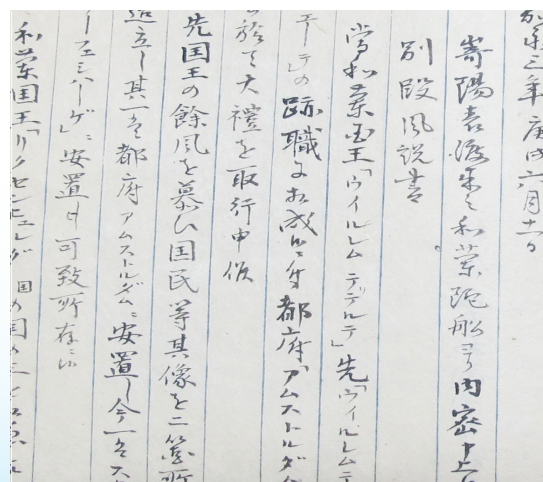 嘉永三年庚戌六月十一日
崎陽表渡来之和蘭陀船ヨリ内密申上
別段風説書
当和蘭国王「ウイルレム デデルデ」先「ウイルレムテ
ーデ」の跡職に相成候付都府「アムストルダ
於て大禮を取行申候
先国王の餘風を慕ひ国民等其像を二箇所
造立し其一は都府アムストルダムに安置し今一はス
ーフェンハーゲ」に安置可致所存に候
和蘭国王「リクセンビュルグ 国の